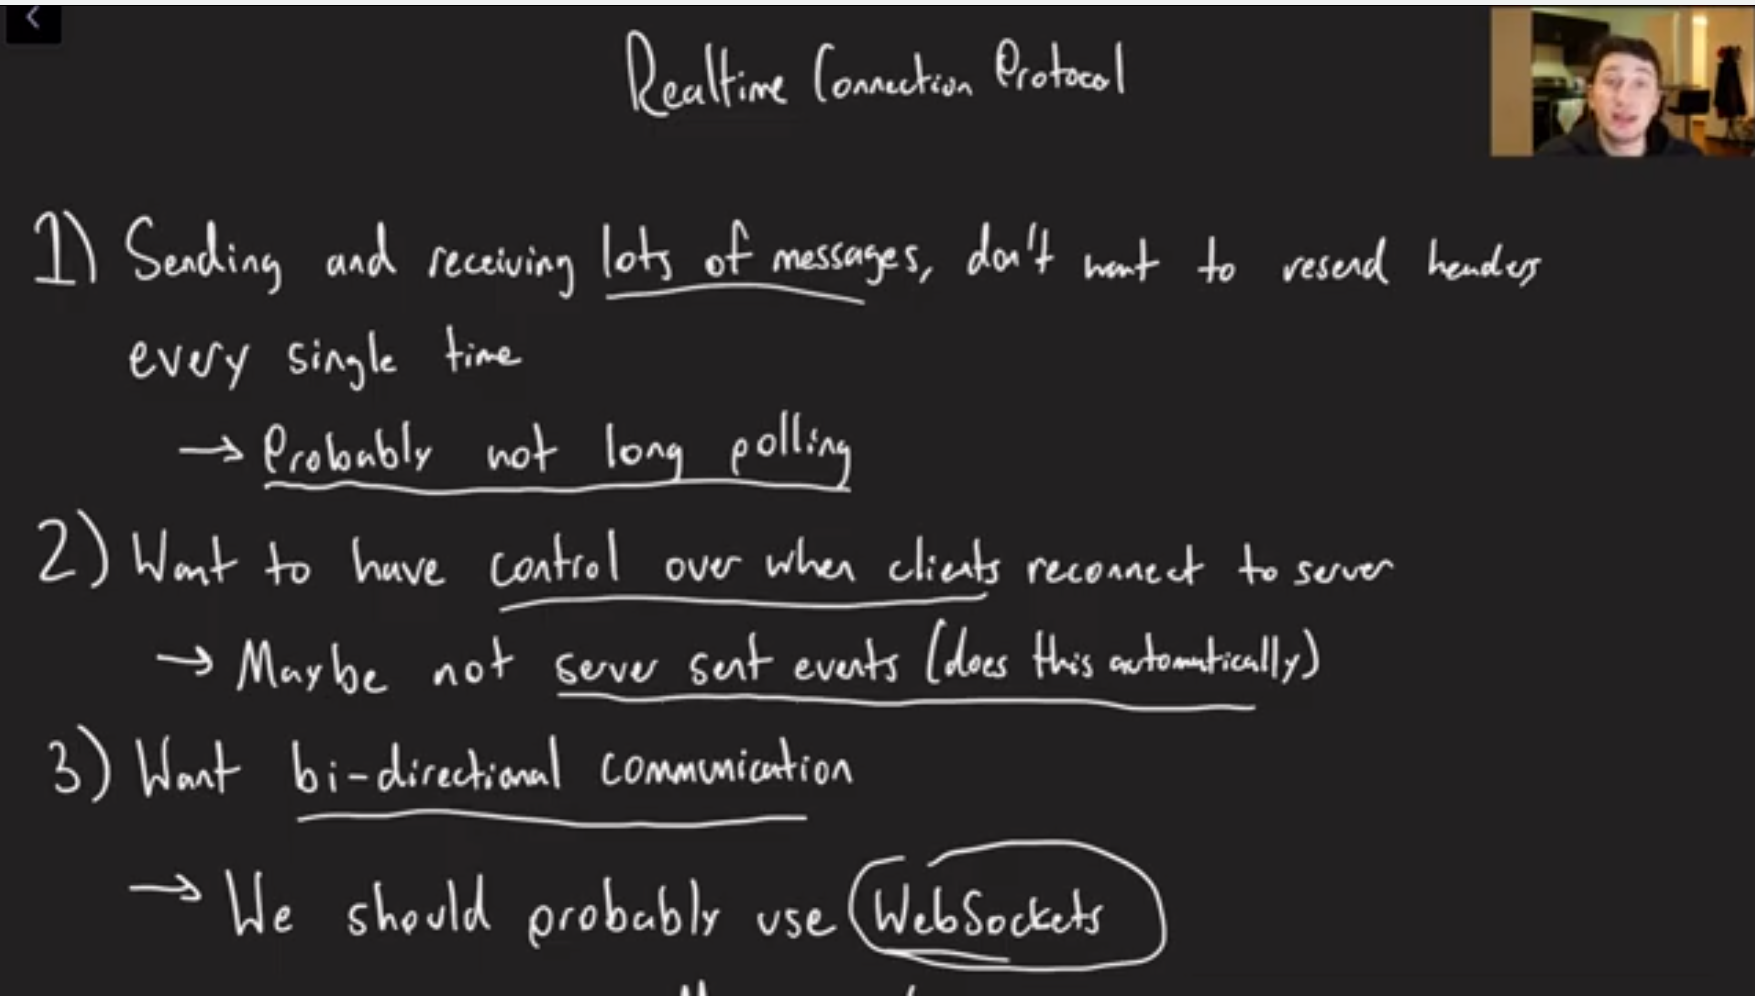 Realtime Connection Protocol
1) Sending and receiving lots of messages, don't want to resend headers
every single time
→ Probably not long polling
2) Want to have control over when clients reconnect to server
→ Maybe not server sent events (does this automatically)
3) Want bi-directional communication
→ We should probably use WebSockets